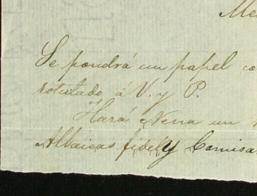 Me
Se pondrá un papel co
rotulado á V. y P.
Hará Nena un
Albaceas fide y Comisa